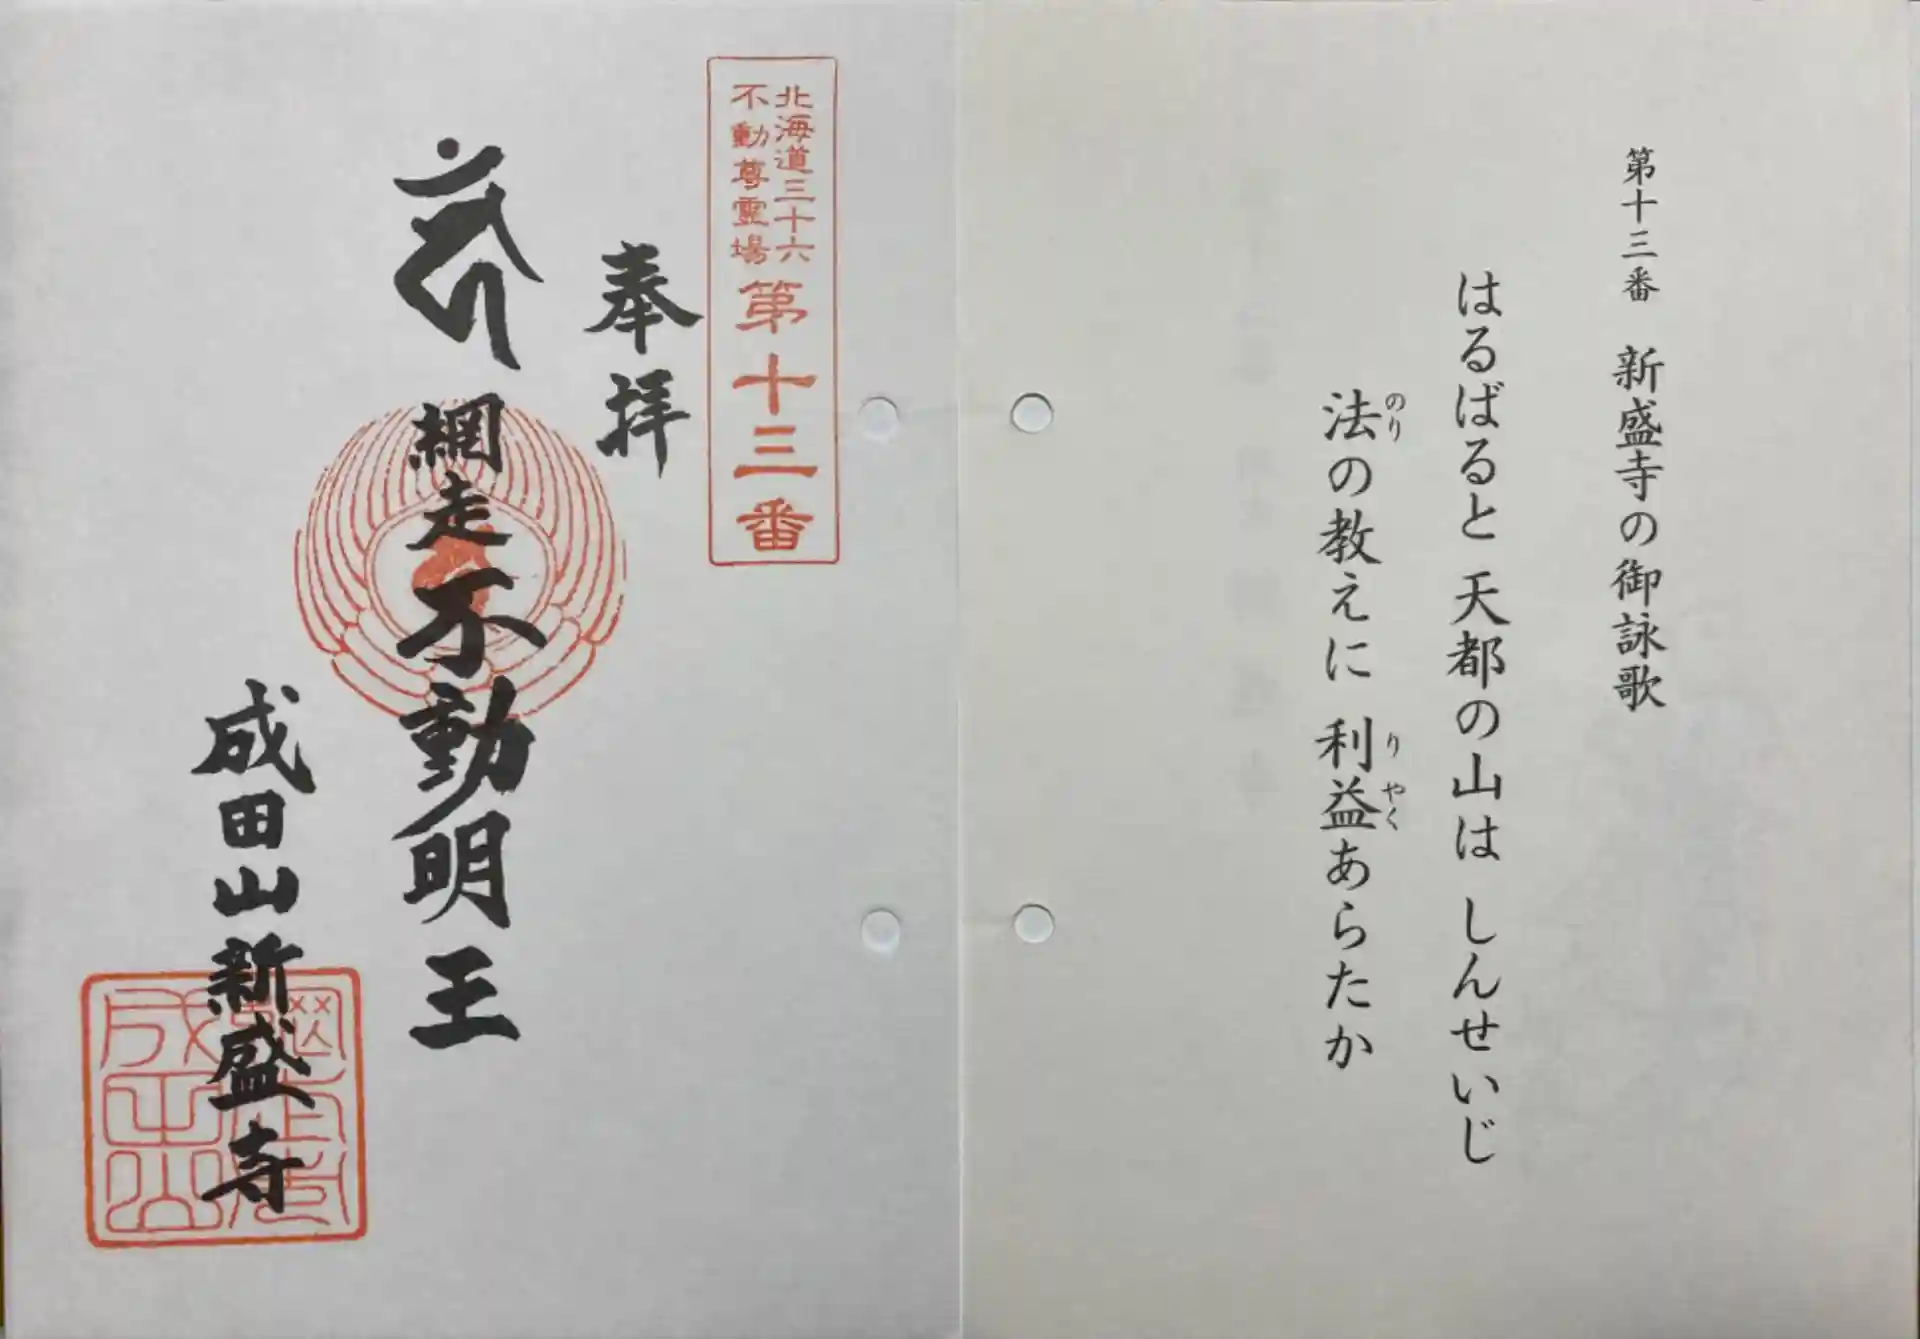 第十三番 新盛寺の御詠歌
はるばると 天都の山は しんせいじ
法の教えに 利益あらたか
のり
りやく
北海道三十六
不動尊霊場
第十三番
奉拝
網走不動明王
成田山新盛寺